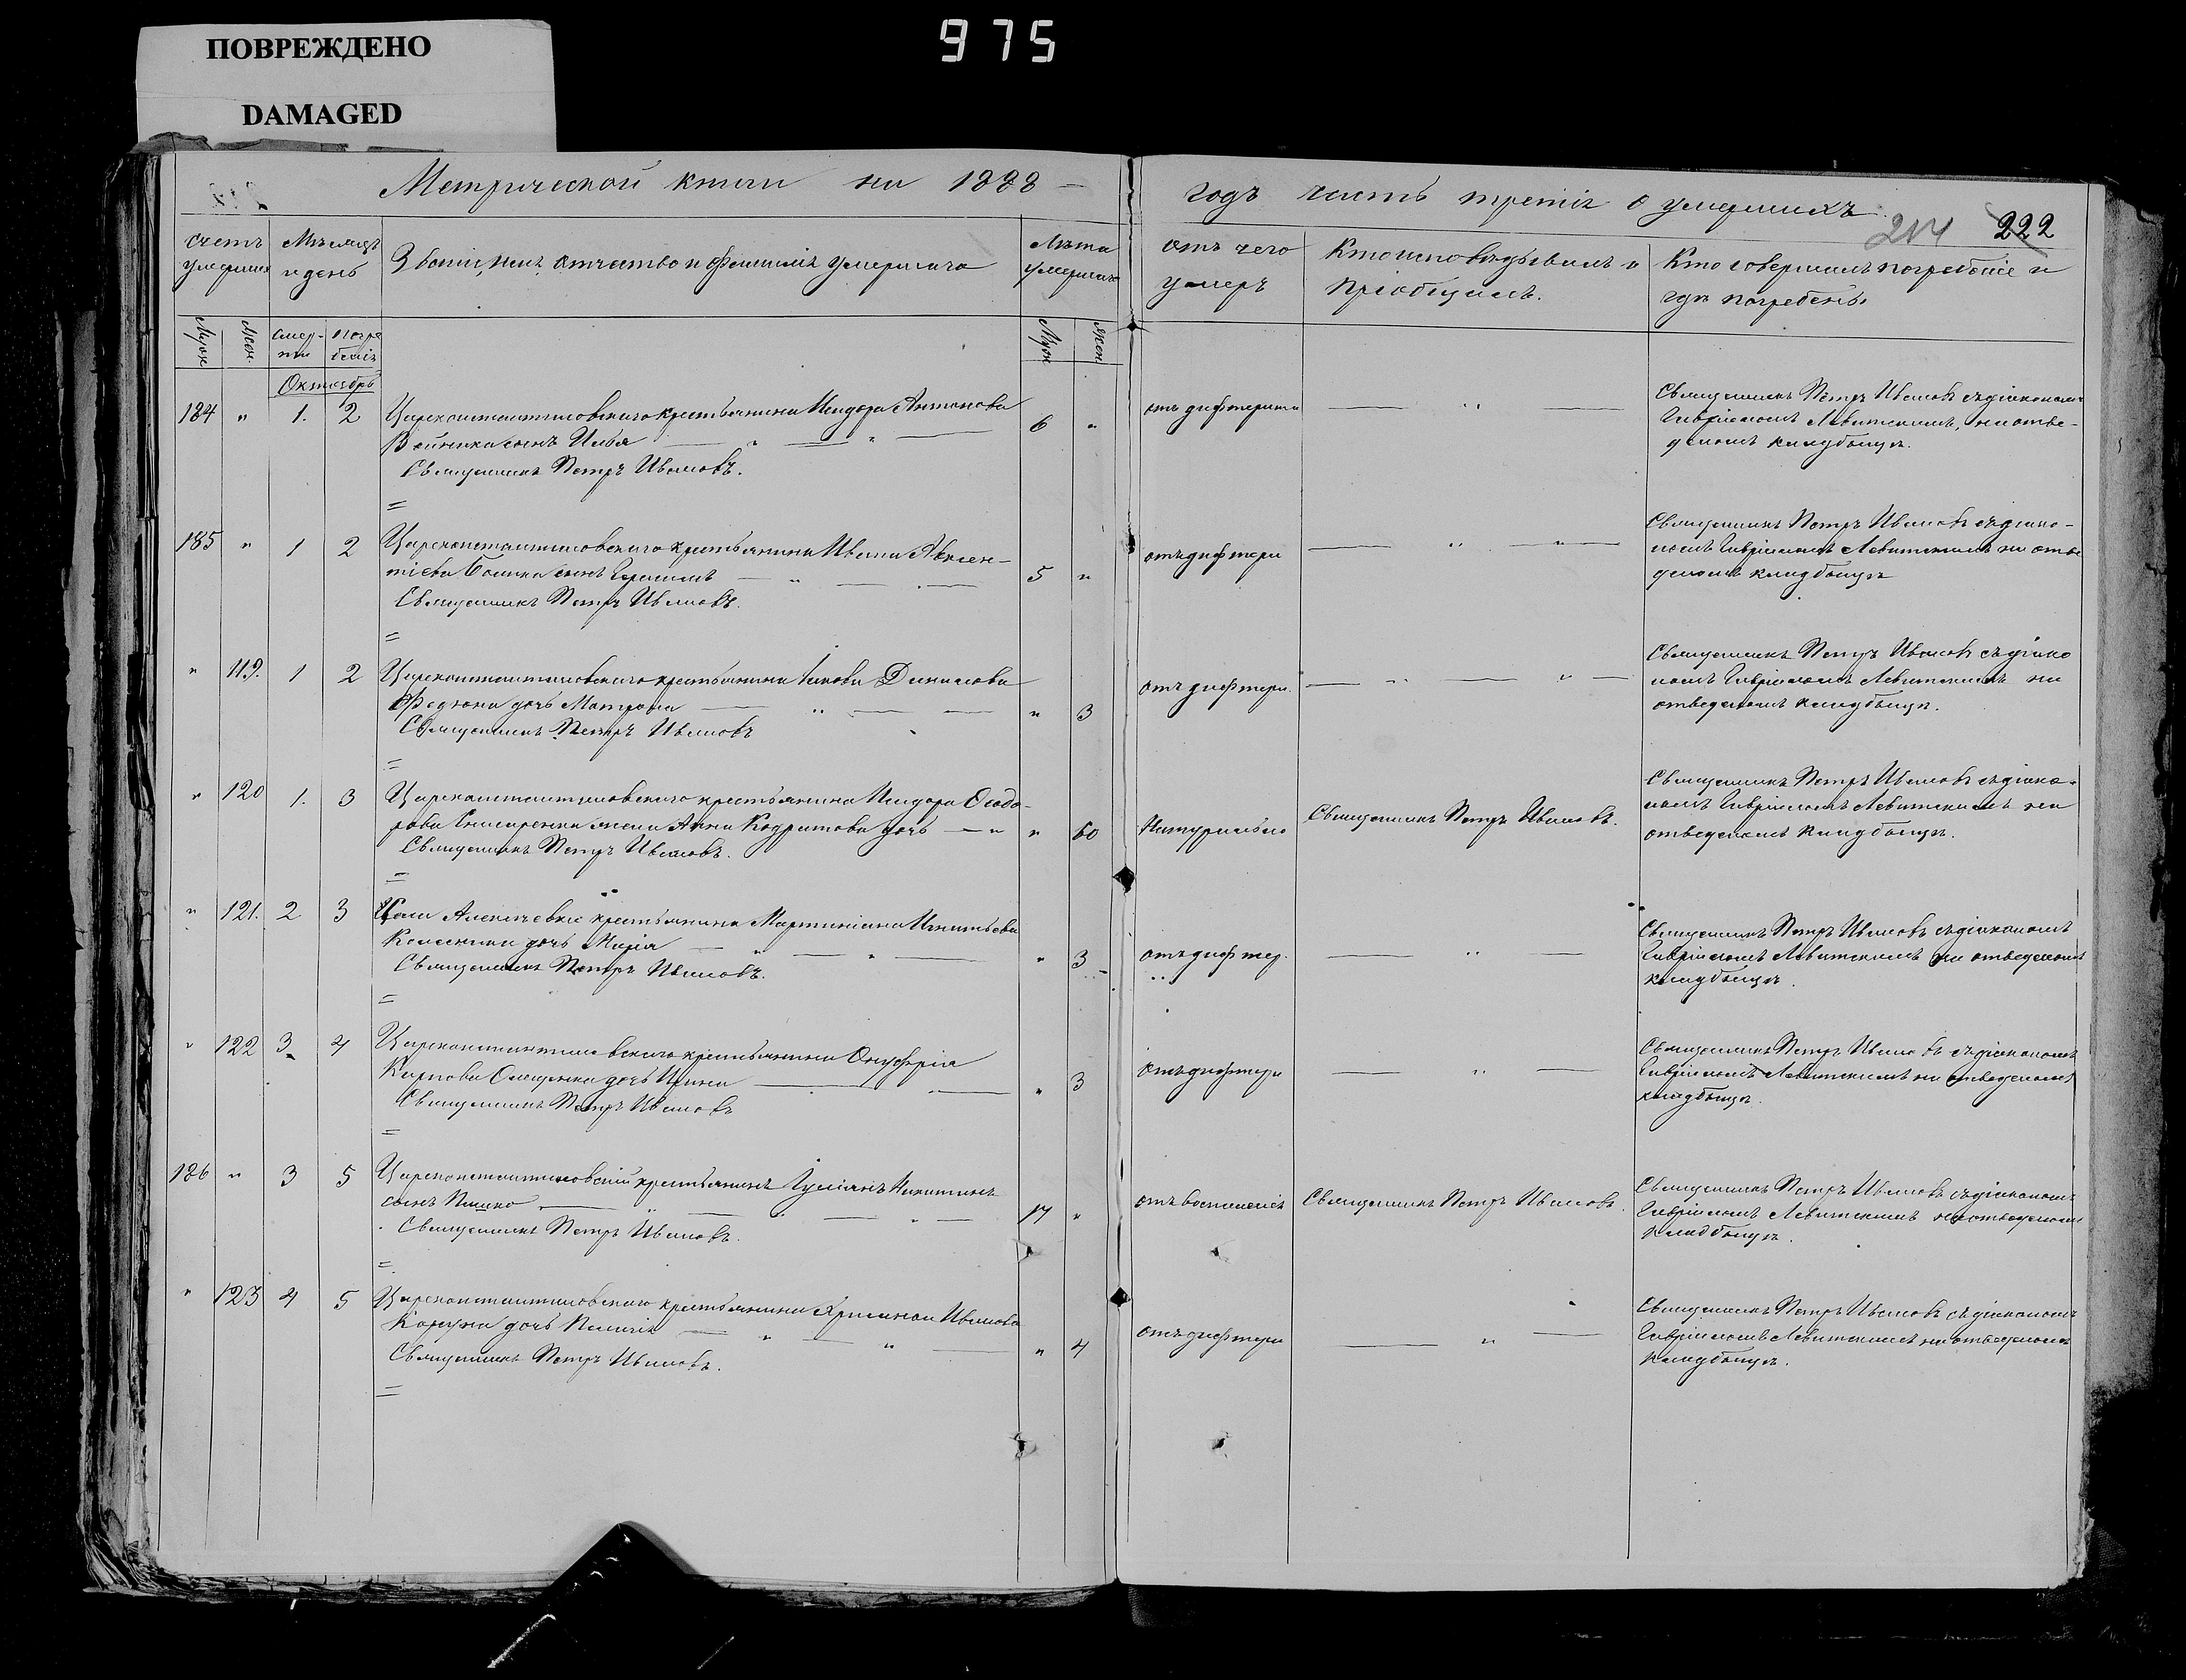 ПОВРЕЖДЕНО
DAMAGED
975
Метрической книги на 1888
годъ часть третія о умершихъ
214 222
счетъ умерших
Мѣсяцъ и день
Званіе, имя, отчество и фамилія умершаго
Лѣта умершаго
отъ чего умеръ
Кто исповѣдывалъ и пріобщалъ.
Кто совершалъ погребеніе и гдѣ погребены
Муж. Жен. смерти погребенія Муж Жен
Октябрь
184 " 1. 2 Цареконстантиновскаго крестьянина Исидора Антонова 6 " отъ дифтерита — " — Священникъ Петръ Ивановъ съ діакономъ
сынъ Илья — " — " —
Гавріиломъ Левитскимъ, на отве-
Священникъ Петръ Ивановъ.
деномъ кладбищѣ.
185 " 1 2 Цареконстантиновскаго крестьянина Ивана Авксен- 5 " отъ дифтери — " — " — Священникъ Петръ Ивановъ съ діако-
тіева сынъ Герасимъ — " — . —
номъ Гавріиломъ Левитскимъ на отве
Священникъ Петръ Ивановъ.
деномъ кладбищѣ
" 119. 1 2 Цареконстантиновскаго крестьянина Іакова Данилова " 3 отъ дифтери. — " — " — Священникъ Петръ Ивановъ съ діако
Федюка дочь Матрона — " — —
номъ Гавріиломъ Левитскимъ на
Священникъ Петръ Ивановъ
отведеномъ кладбищѣ.
" 120 1. 3 Цареконстантиновскаго крестьянина Исидора Ѳеодо- " 60 Натурально Священникъ Петръ Ивановъ. Священникъ Петръ Ивановъ съ діако-
рова Снисаренка жена Анна Кодратова дочь — "
номъ Гавріиломъ Левитскимъ на
Священникъ Петръ Ивановъ.
отведеномъ кладбищѣ.
" 121. 2 3 Села Алексѣевки крестьянина Мартиніана Игнатьева " 3 отъ дифтер. — " — Священникъ Петръ Ивановъ съ діакономъ
Колесника дочь Марія — " — " —
Гавріиломъ Левитскимъ на отведеномъ
Священникъ Петръ Ивановъ.
кладбищѣ.
" 122 3 4 Цареконстантиновскаго крестьянина Онуфрія " 3 отъ дифтери — " — Священникъ Петръ Ивановъ съ діакономъ
Карпова Онищенка дочь Ирина — . — " —
Гавріиломъ Левитскимъ на отведеномъ
Священникъ Петръ Ивановъ
кладбищѣ.
186 " 3 5 Цареконстантиновскій крестьянинъ Іуліанъ Никитинъ 17 " отъ воспаленія Священникъ Петръ Ивановъ. Священникъ Петръ Ивановъ съ діакономъ
сынъ — " — " — " —
Гавріиломъ Левитскимъ на отведеномъ
Священникъ Петръ Ивановъ.
кладбищѣ.
" 123 4 5 Цареконстантиновскаго крестьянина Иванова " 4 отъ дифтери — " — Священникъ Петръ Ивановъ съ діакономъ
дочь Пелагія — " — " —
Гавріиломъ Левитскимъ на отведеномъ
Священникъ Петръ Ивановъ.
кладбищѣ.